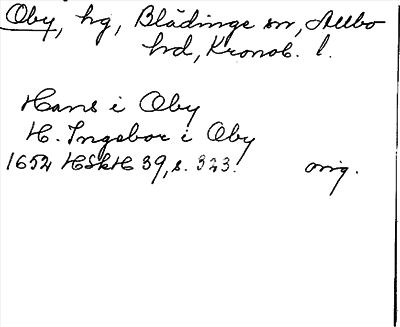 Oby, hg, Blädinge sn, Allbo
hd, Kronob. l.
Hans i Oby
H. Ingebor i Oby
1652 HSkH 39, s. 323. orig.